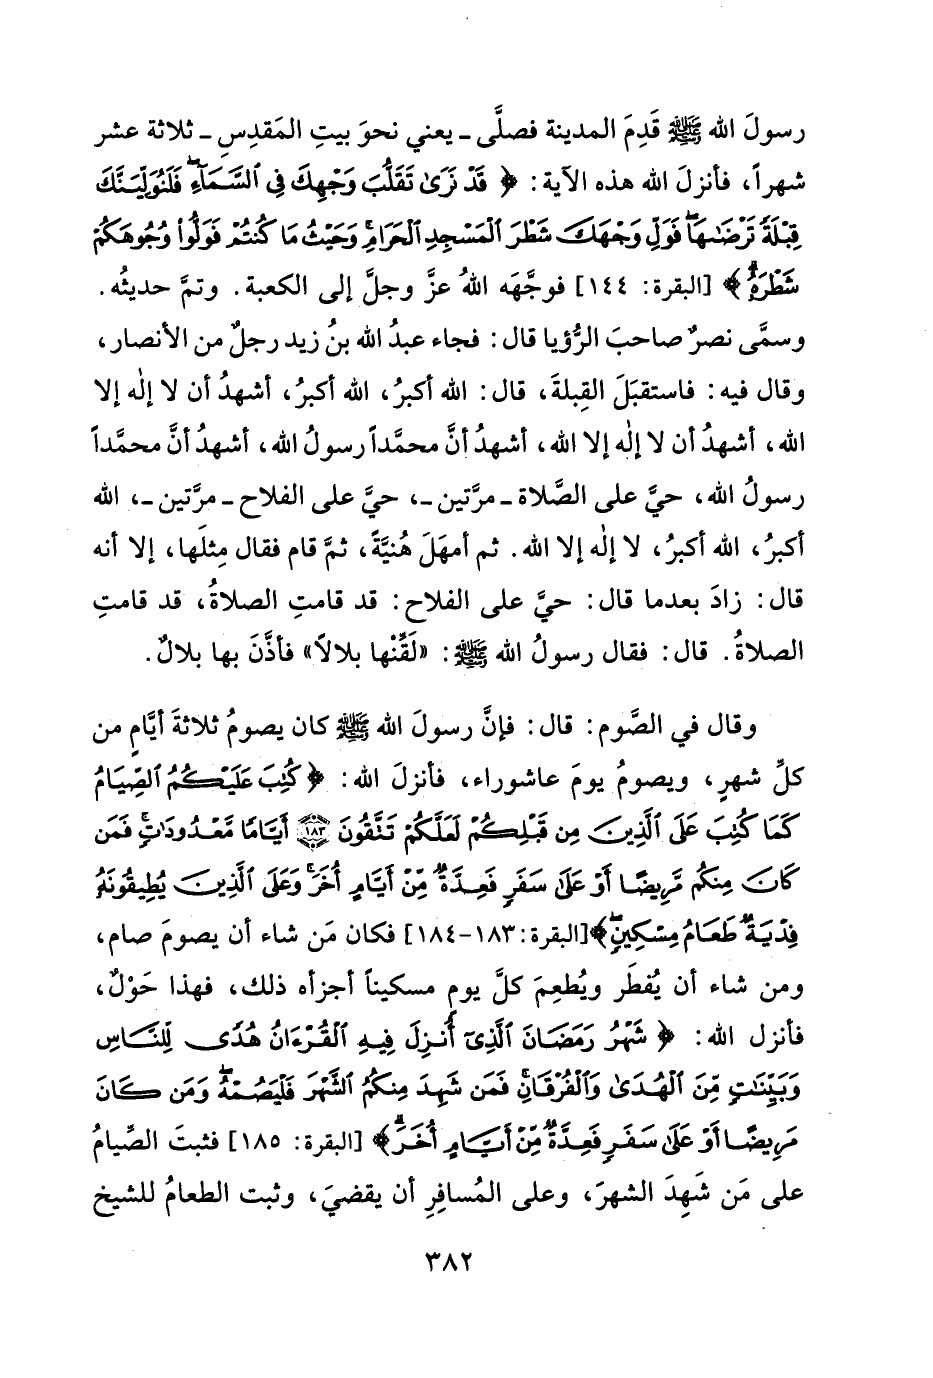 رسولَ الله ﷺ قَدِمَ المدينة فصلَّى ـ يعني نحوَ بيتِ المَقدِسِ ـ ثلاثة عشر
شهراً، فأنزلَ الله هذه الآية: ﴿ قَدْ نَرَىٰ تَقَلُّبَ وَجْهِكَ فِي ٱلسَّمَآءِۖ فَلَنُوَلِّيَنَّكَ
قِبْلَةً تَرْضَىٰهَاۚ فَوَلِّ وَجْهَكَ شَطْرَ ٱلْمَسْجِدِ ٱلْحَرَامِۚ وَحَيْثُ مَا كُنتُمْ فَوَلُّوا۟ وُجُوهَكُمْ
شَطْرَهُۥ ﴾ [البقرة: ١٤٤] فوجَّهَه اللهُ عزَّ وجلَّ إلى الكعبة. وتمَّ حديثُه.
وسمَّى نصرٌ صاحبَ الرُّؤيا قال: فجاء عبدُ الله بنُ زيد رجلٌ من الأنصار،
وقال فيه: فاستقبَلَ القِبلةَ، قال: الله أكبرُ، الله أكبرُ، أشهدُ أن لا إلٰه إلا
الله، أشهدُ أن لا إلٰه إلا الله، أشهدُ أنَّ محمَّداً رسولُ الله، أشهدُ أنَّ محمَّداً
رسولُ الله، حيَّ على الصَّلاة ـ مرَّتين ـ، حيَّ على الفلاح ـ مرَّتين ـ، الله
أكبرُ، الله أكبرُ، لا إلٰه إلا الله. ثم أمهَلَ هُنيَّةً، ثمَّ قام فقال مِثلَها، إلا أنه
قال: زادَ بعدما قال: حيَّ على الفلاح: قد قامتِ الصلاةُ، قد قامتِ
الصلاةُ. قال: فقال رسولُ الله ﷺ: «لَقِّنْها بلالاً» فأذَّنَ بها بلالٌ.
وقال في الصَّوم: قال: فإنَّ رسولَ الله ﷺ كان يصومُ ثلاثةَ أيَّامٍ من
كلِّ شهرٍ، ويصومُ يومَ عاشوراء، فأنزلَ الله: ﴿ كُتِبَ عَلَيْكُمُ ٱلصِّيَامُ
كَمَا كُتِبَ عَلَى ٱلَّذِينَ مِن قَبْلِكُمْ لَعَلَّكُمْ تَتَّقُونَ ١٨٣ أَيَّامًا مَّعْدُودَٰتٍۚ فَمَن
كَانَ مِنكُم مَّرِيضًا أَوْ عَلَىٰ سَفَرٍ فَعِدَّةٌ مِّنْ أَيَّامٍ أُخَرَۚ وَعَلَى ٱلَّذِينَ يُطِيقُونَهُۥ
فِدْيَةٌ طَعَامُ مِسْكِينٍۖ ﴾[البقرة: ١٨٣-١٨٤] فكان مَن شاء أن يصومَ صام،
ومن شاء أن يُفطَر ويُطعِمَ كلَّ يومٍ مسكيناً أجزأه ذلك، فهذا حَوْلٌ،
فأنزل الله: ﴿ شَهْرُ رَمَضَانَ ٱلَّذِىٓ أُنزِلَ فِيهِ ٱلْقُرْءَانُ هُدًى لِّلنَّاسِ
وَبَيِّنَٰتٍ مِّنَ ٱلْهُدَىٰ وَٱلْفُرْقَانِۚ فَمَن شَهِدَ مِنكُمُ ٱلشَّهْرَ فَلْيَصُمْهُۖ وَمَن كَانَ
مَرِيضًا أَوْ عَلَىٰ سَفَرٍ فَعِدَّةٌ مِّنْ أَيَّامٍ أُخَرَۗ ﴾ [البقرة: ١٨٥] فثبتَ الصِّيامُ
على مَن شَهِدَ الشهرَ، وعلى المُسافِرِ أن يقضيَ، وثبت الطعامُ للشيخ
٣٨٢